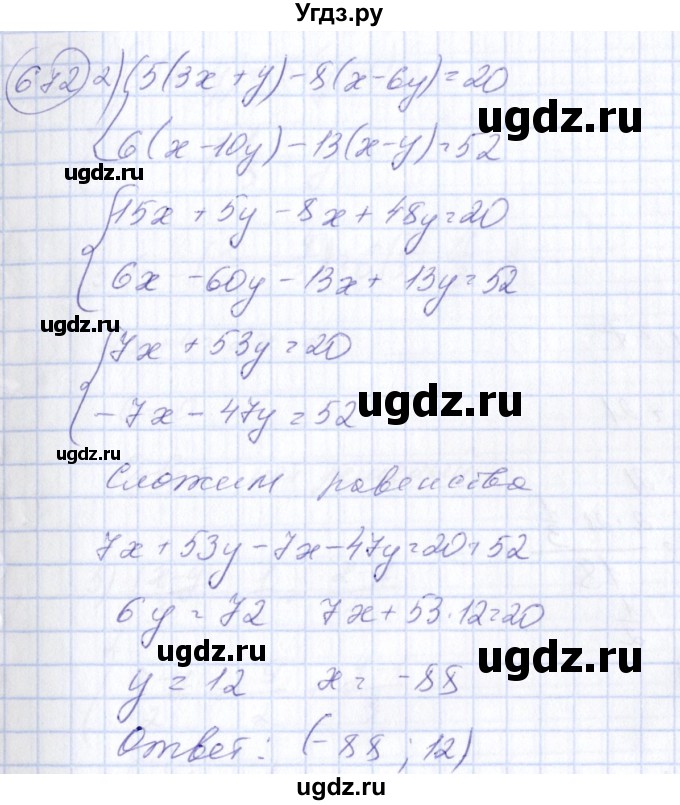 Угдз.ру
672 2) { 5(3x + y) - 8(x - 6y) = 20
ugdz.ru
6(x - 10y) - 13(x - y) = 52
ugdz.ru
{ 15x + 5y - 8x + 48y = 20
6x - 60y - 13x + 13y = 52
ugdz.ru
{ 7x + 53y = 20
- 7x - 47y = 52
ugdz.ru
ugdz.ru
Сложим равенства
7x + 53y - 7x - 47y = 20 + 52
6y = 72 7x + 53 · 12 = 20
ugdz.ru
ugdz.ru
y = 12 x = -88
Ответ: (-88; 12)
ugdz.ru
ugdz.ru